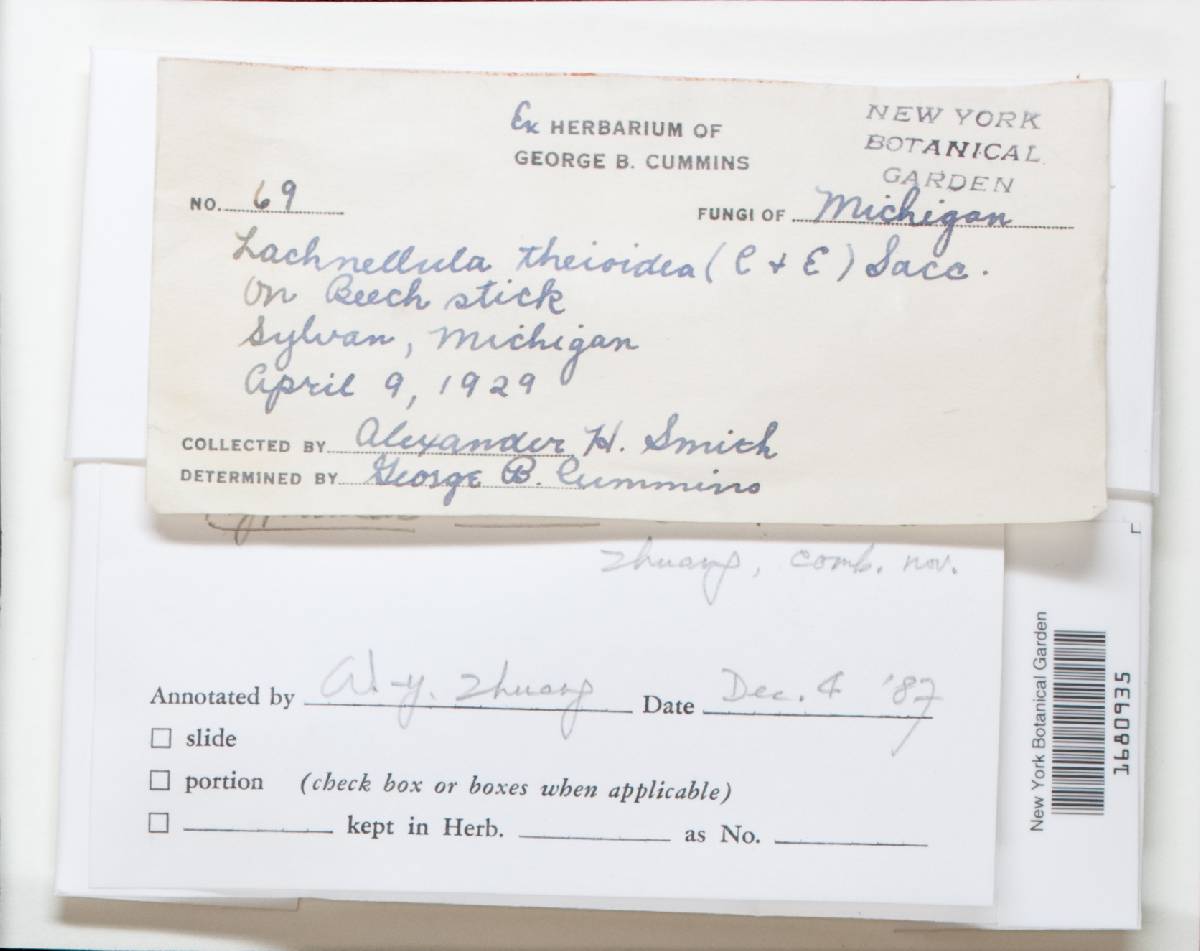 Ex HERBARIUM OF
GEORGE B. CUMMINS
NEW YORK
BOTANICAL
GARDEN
NO. 69
FUNGI OF Michigan
Lachnellula theioidea (C & E) Sacc.
On Beech stick
Sylvan, Michigan
April 9, 1929
COLLECTED BY Alexander H. Smith
DETERMINED BY George B. Cummins
Zhuang, comb. nov.
Annotated by W-y. Zhuang Date Dec. 4 '87
slide
portion (check box or boxes when applicable)
kept in Herb. as No.
New York Botanical Garden
1680935